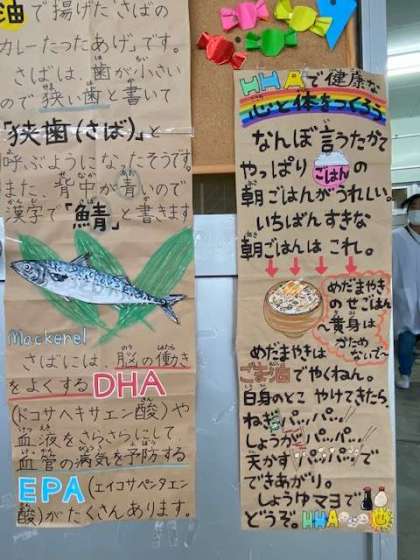 油で揚げた"さばの
カレーたつたあげ"です。
さばは、歯が小さい
ので狭い歯と書いて
「狭歯(さば)」と
呼ぶようになったそうです。
また、背中が青いので
漢字で「鯖」と書きます
Mackerel
さばには、脳の働き
をよくするDHA
(ドコサヘキサエン酸)や
血液をさらさらにして
血管の病気を予防する
EPA(エイコサペンタエン
酸)がたくさんあります。
HHAで健康な
心と体をつくろう
なんぼ言うたかて
やっぱりごはんの
朝ごはんがうれしい。
いちばんすきな
朝ごはんはこれ。
めだまやき
のせごはん
〜黄身は
かため
ないで〜
めだまやきは
ごま油でやくねん。
白身のとこやけてきたら、
ねぎパッパッ!
しょうがパッパッ!
天かすパッパッ!で
できあがり。
しょうゆマヨで
どうぞ。HHA